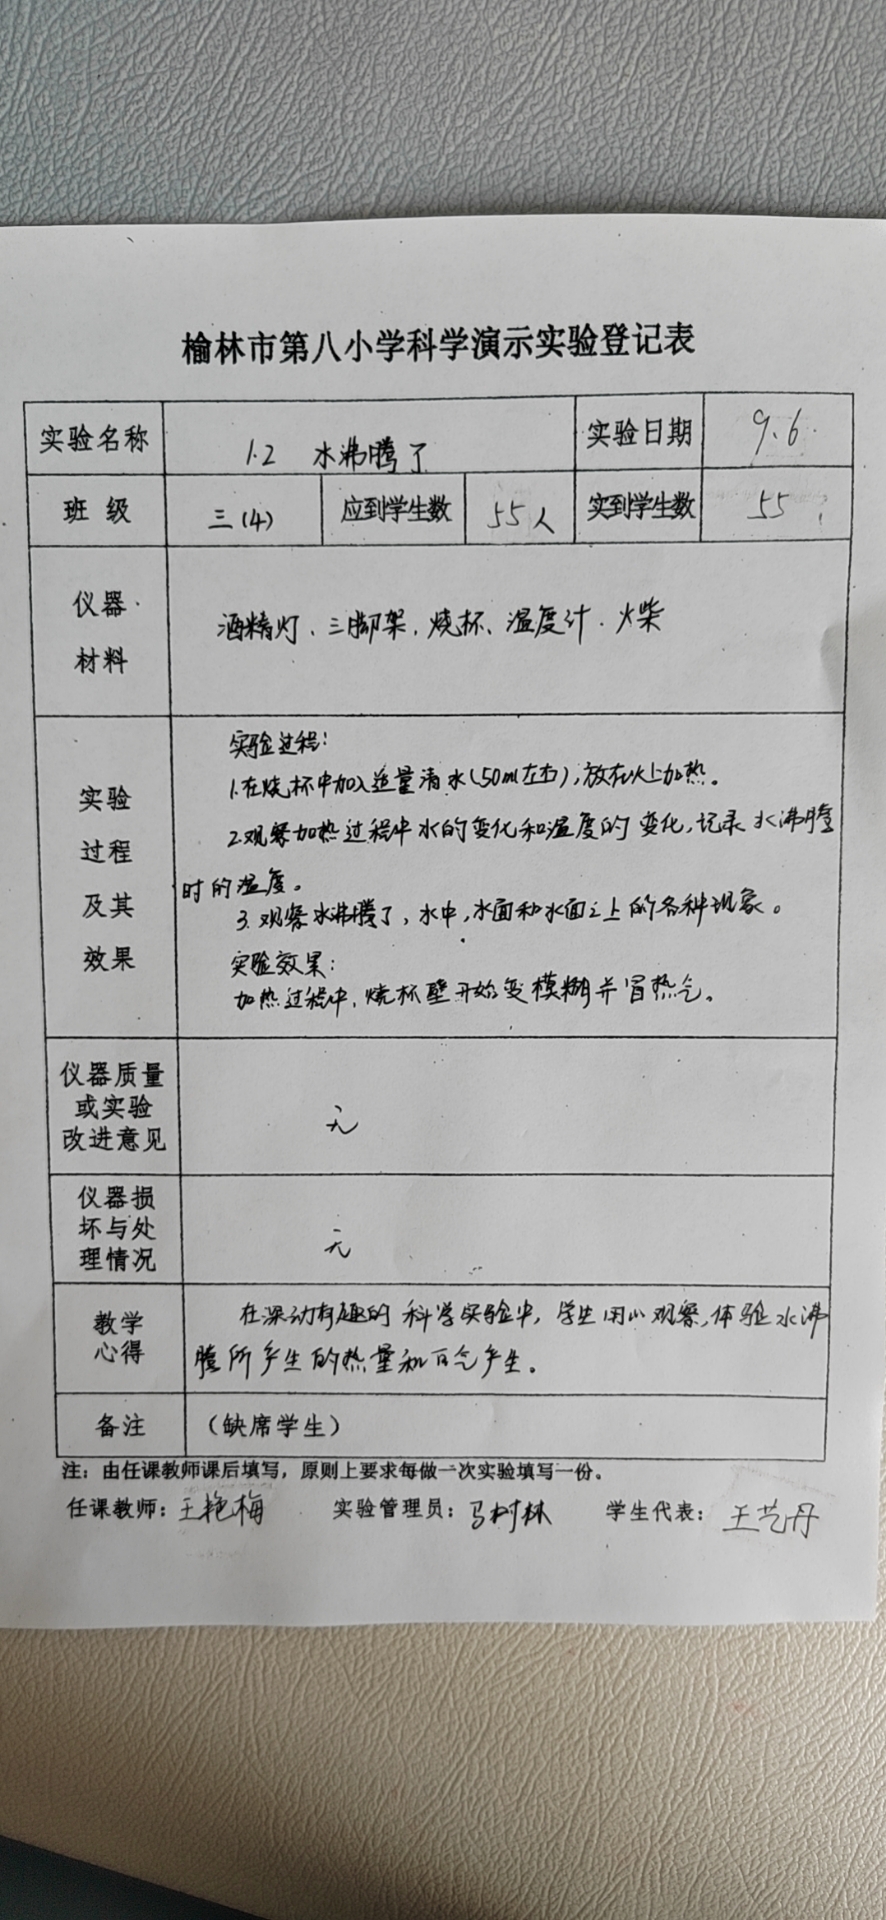 榆林市第八小学科学演示实验登记表
实验名称 1.2 水沸腾了 实验日期 9.6
班级 三(4) 应到学生数 55人 实到学生数 55
仪器
材料
酒精灯、三脚架、烧杯、温度计、火柴
实验
过程
及其
效果
实验过程:
1.在烧杯中加入适量清水(50ml左右),放在火上加热。
2.观察加热过程中水的变化和温度的变化,记录水沸腾
时的温度。
3.观察水沸腾了,水中,水面和水面之上的各种现象。
实验效果:
加热过程中,烧杯壁开始变模糊并冒热气。
仪器质量
或实验
改进意见
无
仪器损
坏与处
理情况
无
教学
心得
在深动有趣的科学实验中,学生用心观察,体验水沸
腾所产生的热量和 产生。
备注 (缺席学生)
注:由任课教师课后填写,原则上要求每做一次实验填写一份。
任课教师:王艳梅 实验管理员:马树林 学生代表:王艺丹